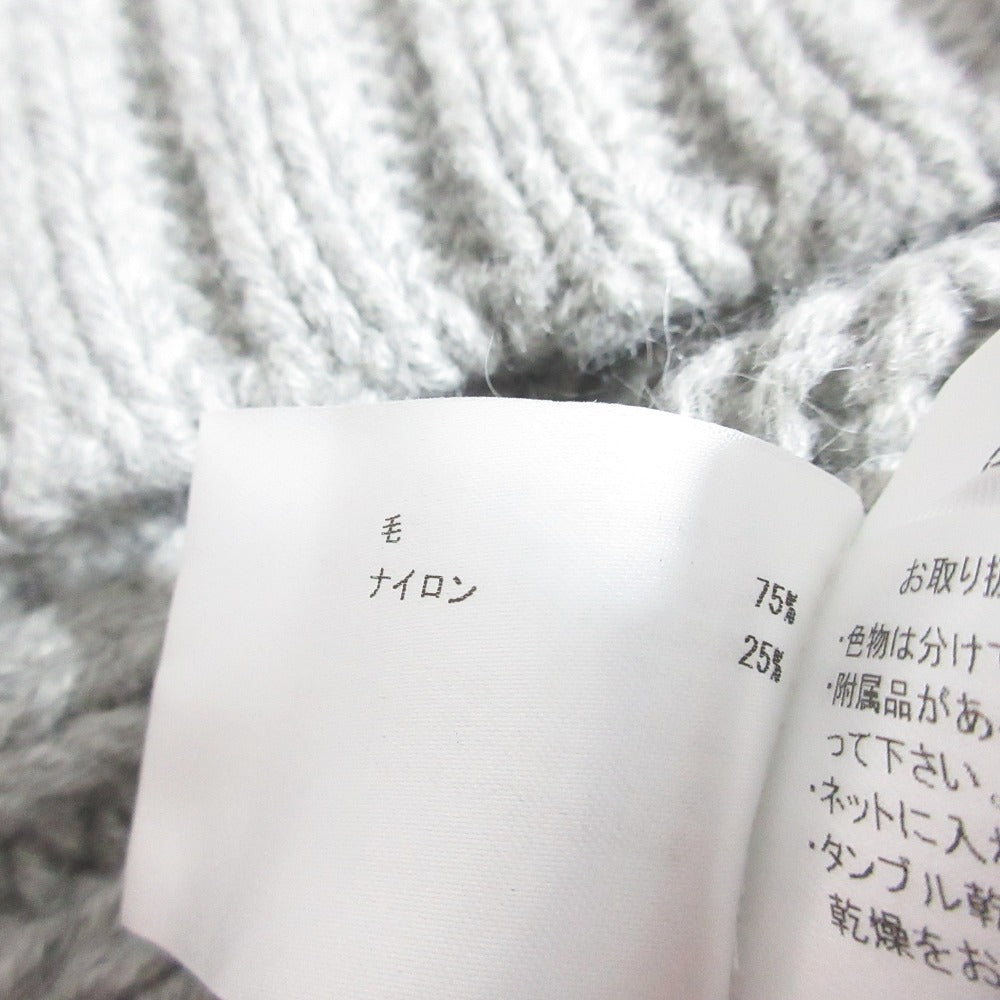 毛 75%
ナイロン 25%
お取り扱
・色物は分けて
・附属品があ
って下さい。
・ネットに入れ
・タンブル乾
乾燥をお